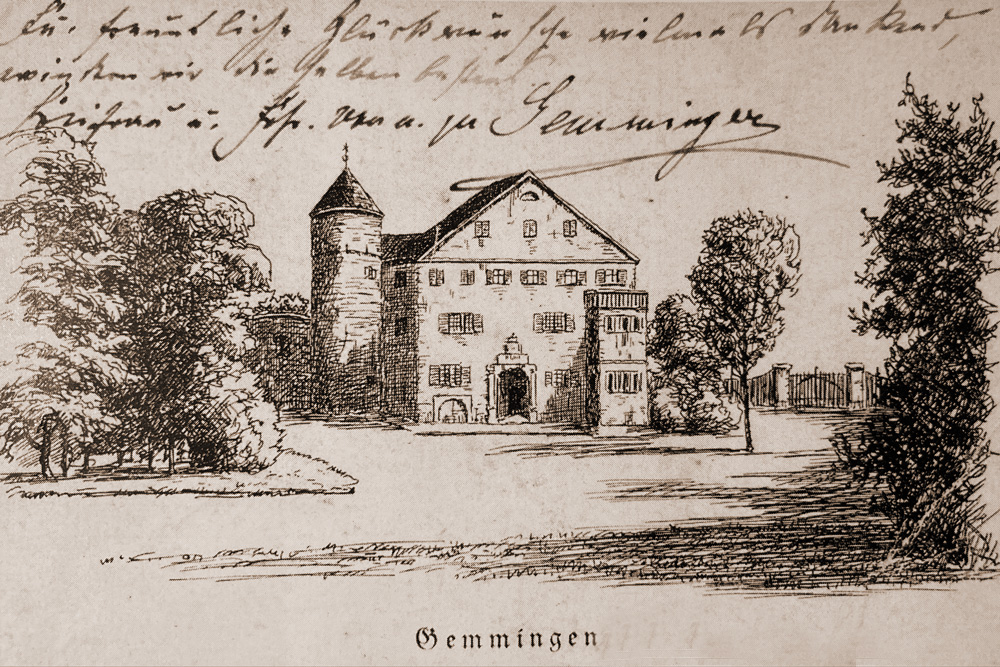 Für freundliche Glückwünsche vielmals dankend,
wir dieselben bestens
Freifrau u. Frh. von u. zu Gemmingen
Gemmingen